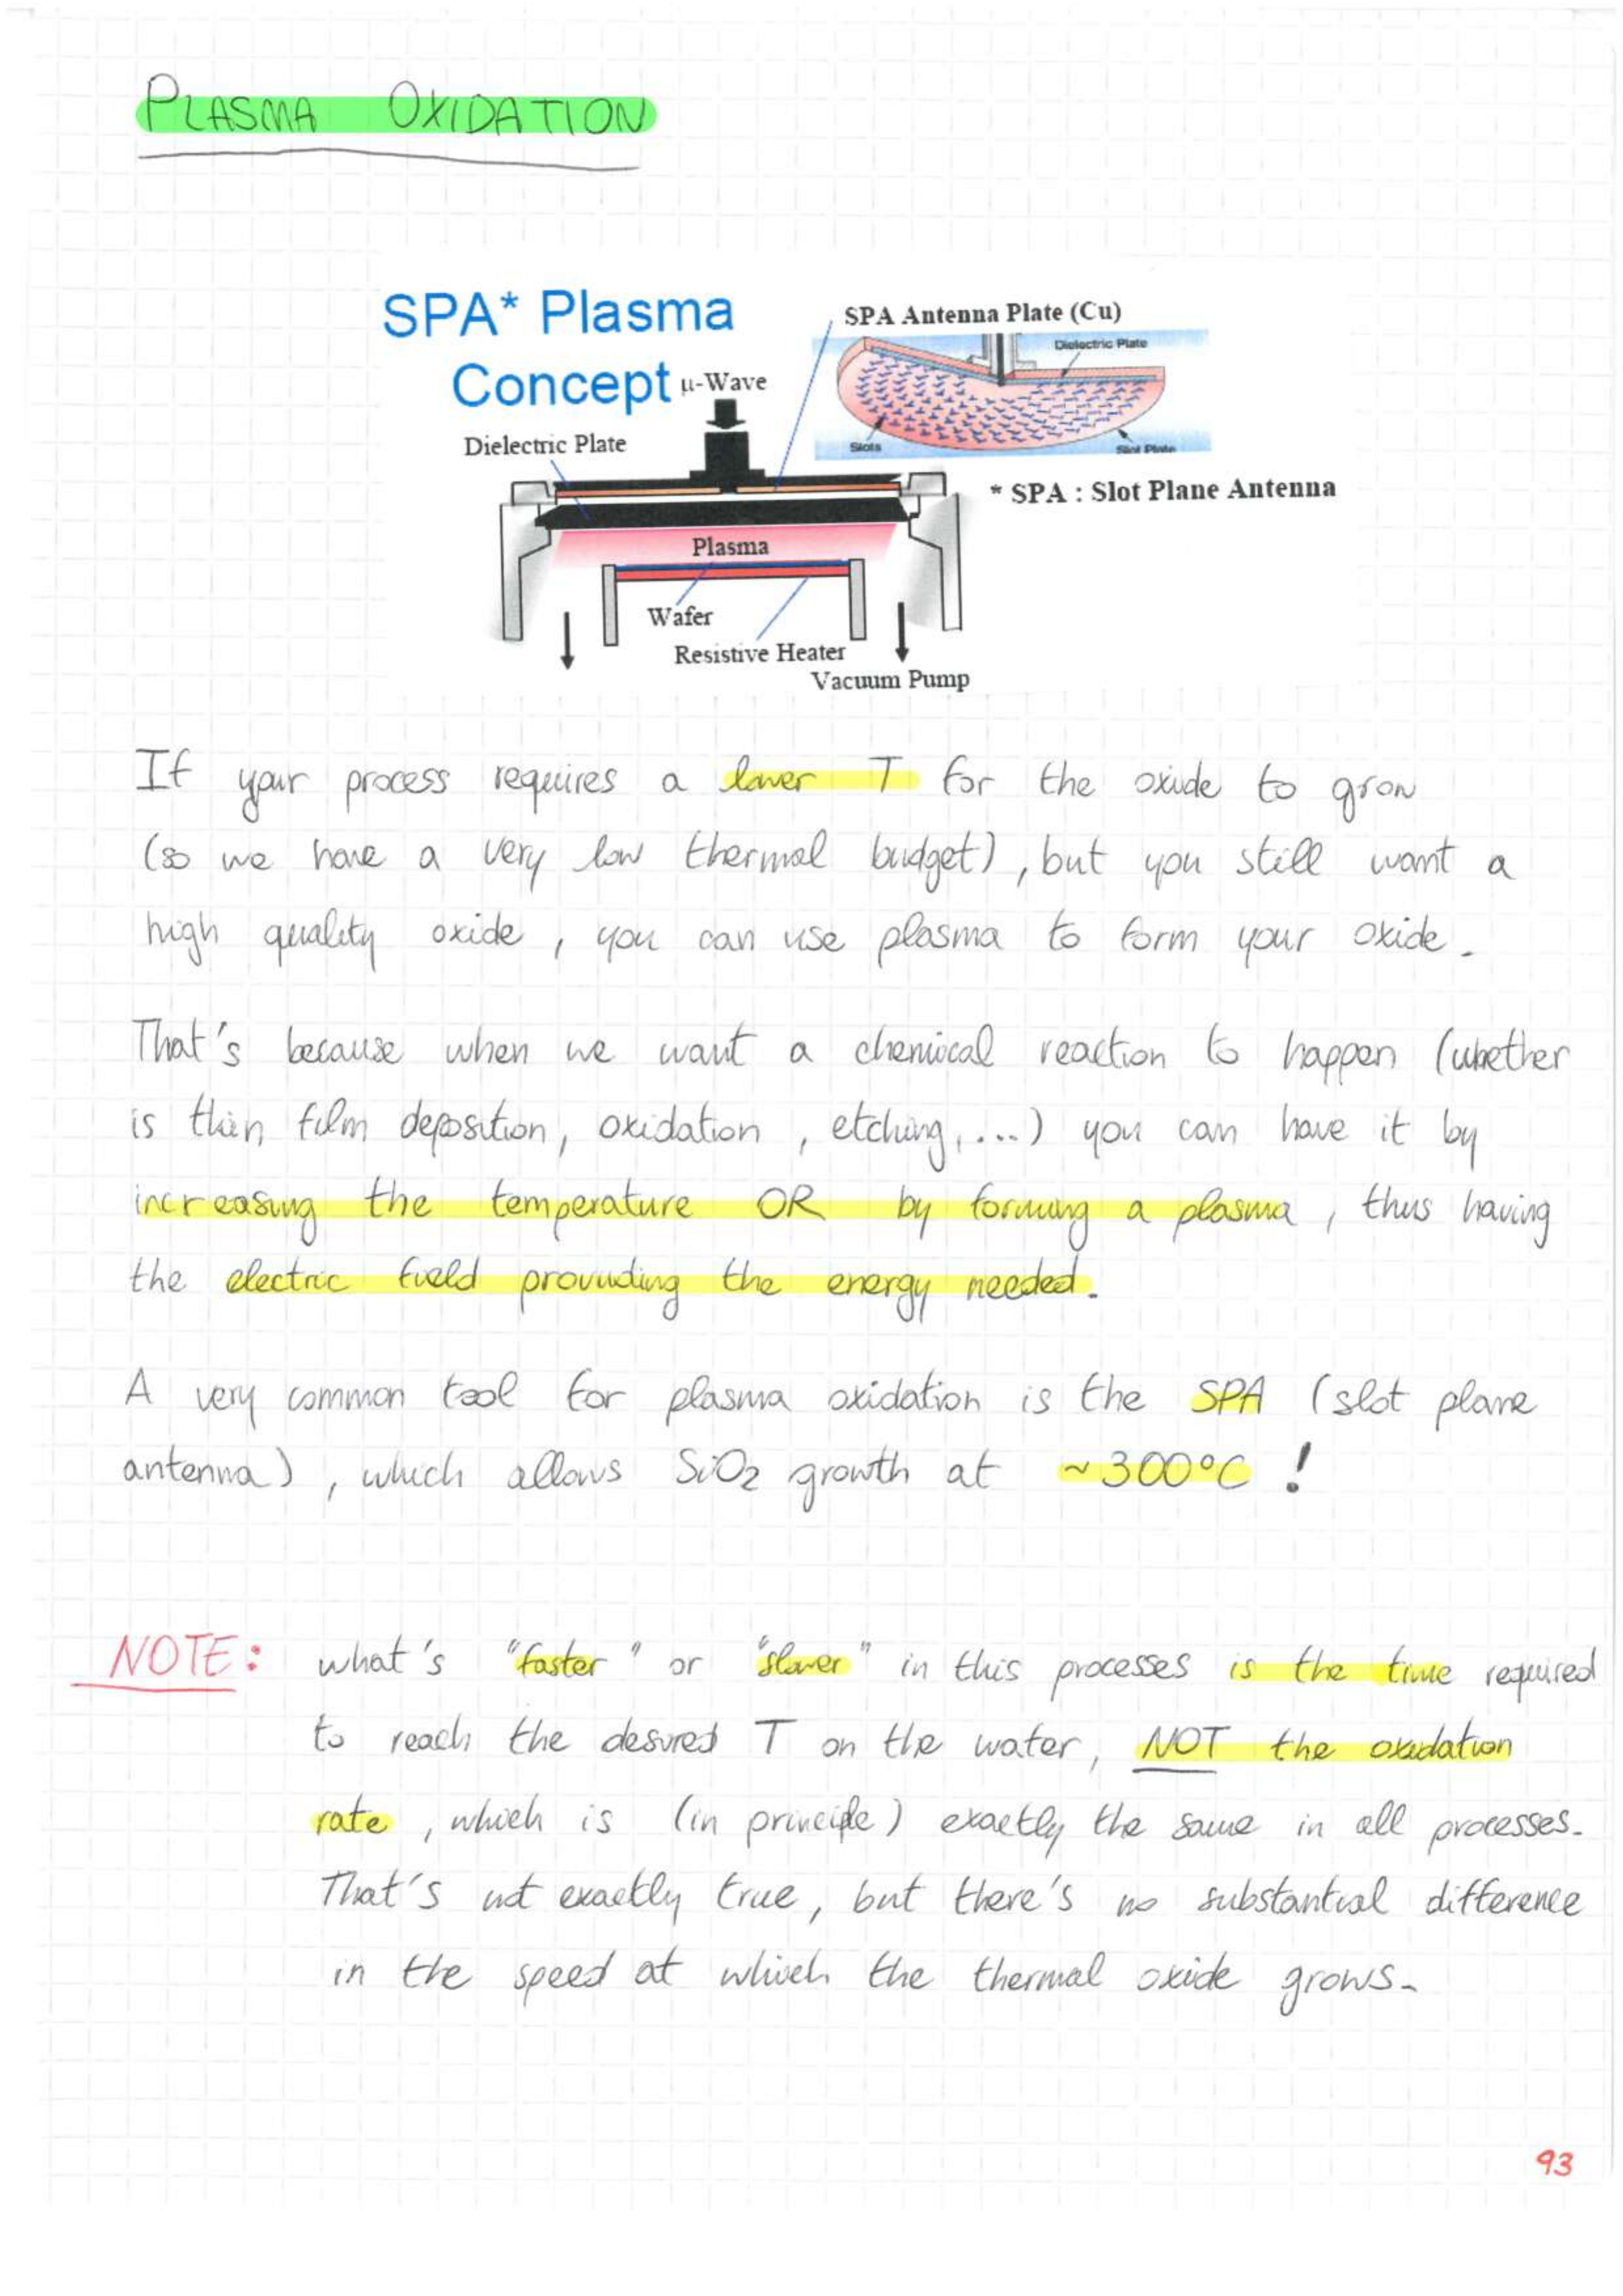 PLASMA OXIDATION
SPA* Plasma
Concept
μ-Wave
SPA Antenna Plate (Cu)
Dielectric Plate
Slots
Slot Plate
Dielectric Plate
* SPA : Slot Plane Antenna
Plasma
Wafer
Resistive Heater
Vacuum Pump
If your process requires a lower T for the oxide to grow
(so we have a very low thermal budget), but you still want a
high quality oxide, you can use plasma to form your oxide.
That's because when we want a chemical reaction to happen (whether
is thin film deposition, oxidation, etching, ...) you can have it by
increasing the temperature OR by forming a plasma, thus having
the electric field providing the energy needed.
A very common tool for plasma oxidation is the SPA (slot plane
antenna), which allows SiO2 growth at ~300°C !
NOTE: what's "faster" or "slower" in this processes is the time required
to reach the desired T on the wafer, NOT the oxidation
rate, which is (in principle) exactly the same in all processes.
That's not exactly true, but there's no substantial difference
in the speed at which the thermal oxide grows.
93